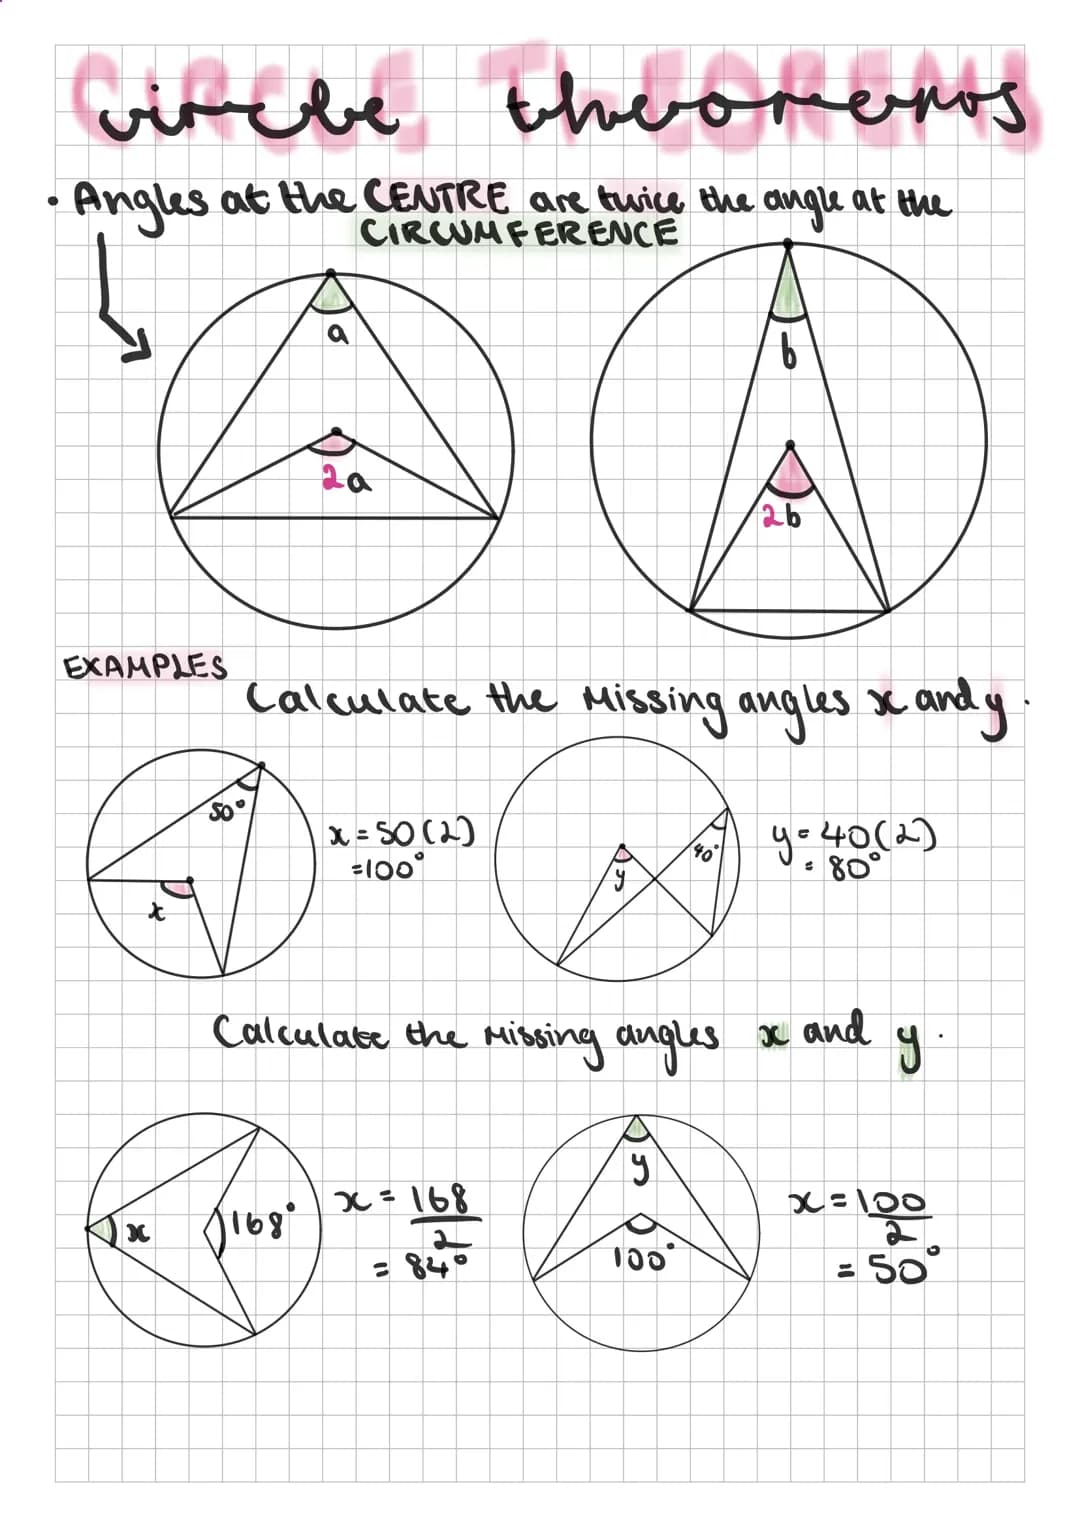 CIRCLE THEOREMS
circle theorems
• Angles at the CENTRE are twice the angle at the
CIRCUMFERENCE
a
2a
b
2b
EXAMPLES
Calculate the missing angles x and y.
50°
x
x = 50(2)
=100°
40°
y
y = 40(2)
= 80°
Calculate the missing angles x and y.
x
168°
x = 168
2
= 84°
y
100°
x = 100
2
= 50°